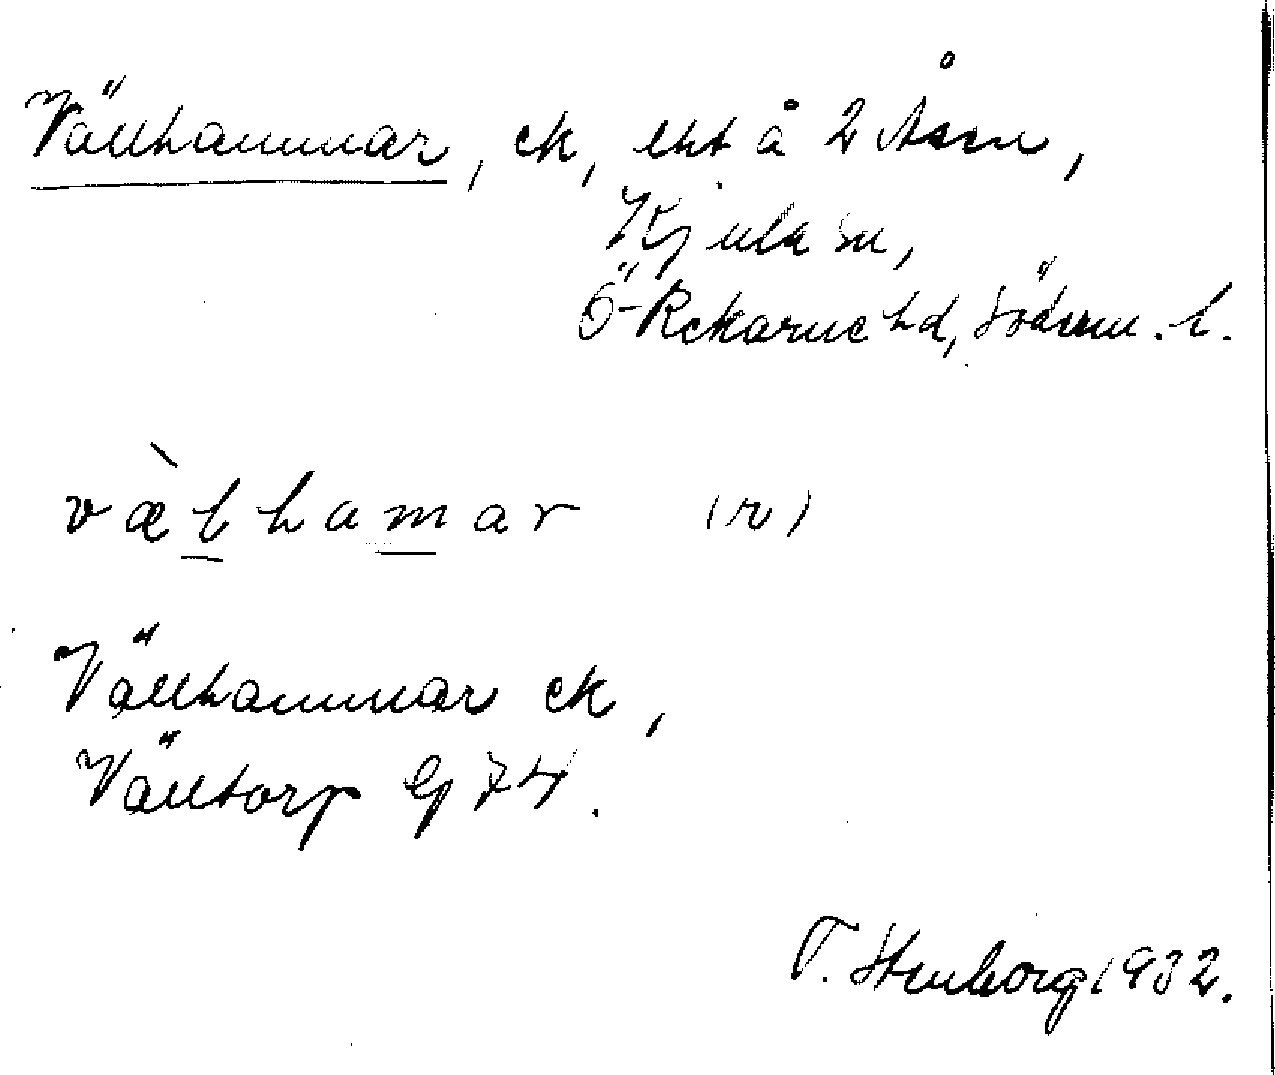 Vällhammar, ek, lht å 2 Åsen,
Kjula sn,
Ö-Rekarne hd, Söderm. l.
vælhamar (r)
Vällhammar ek,
Välltorp Ej 74.
T. Stenborg 1932.